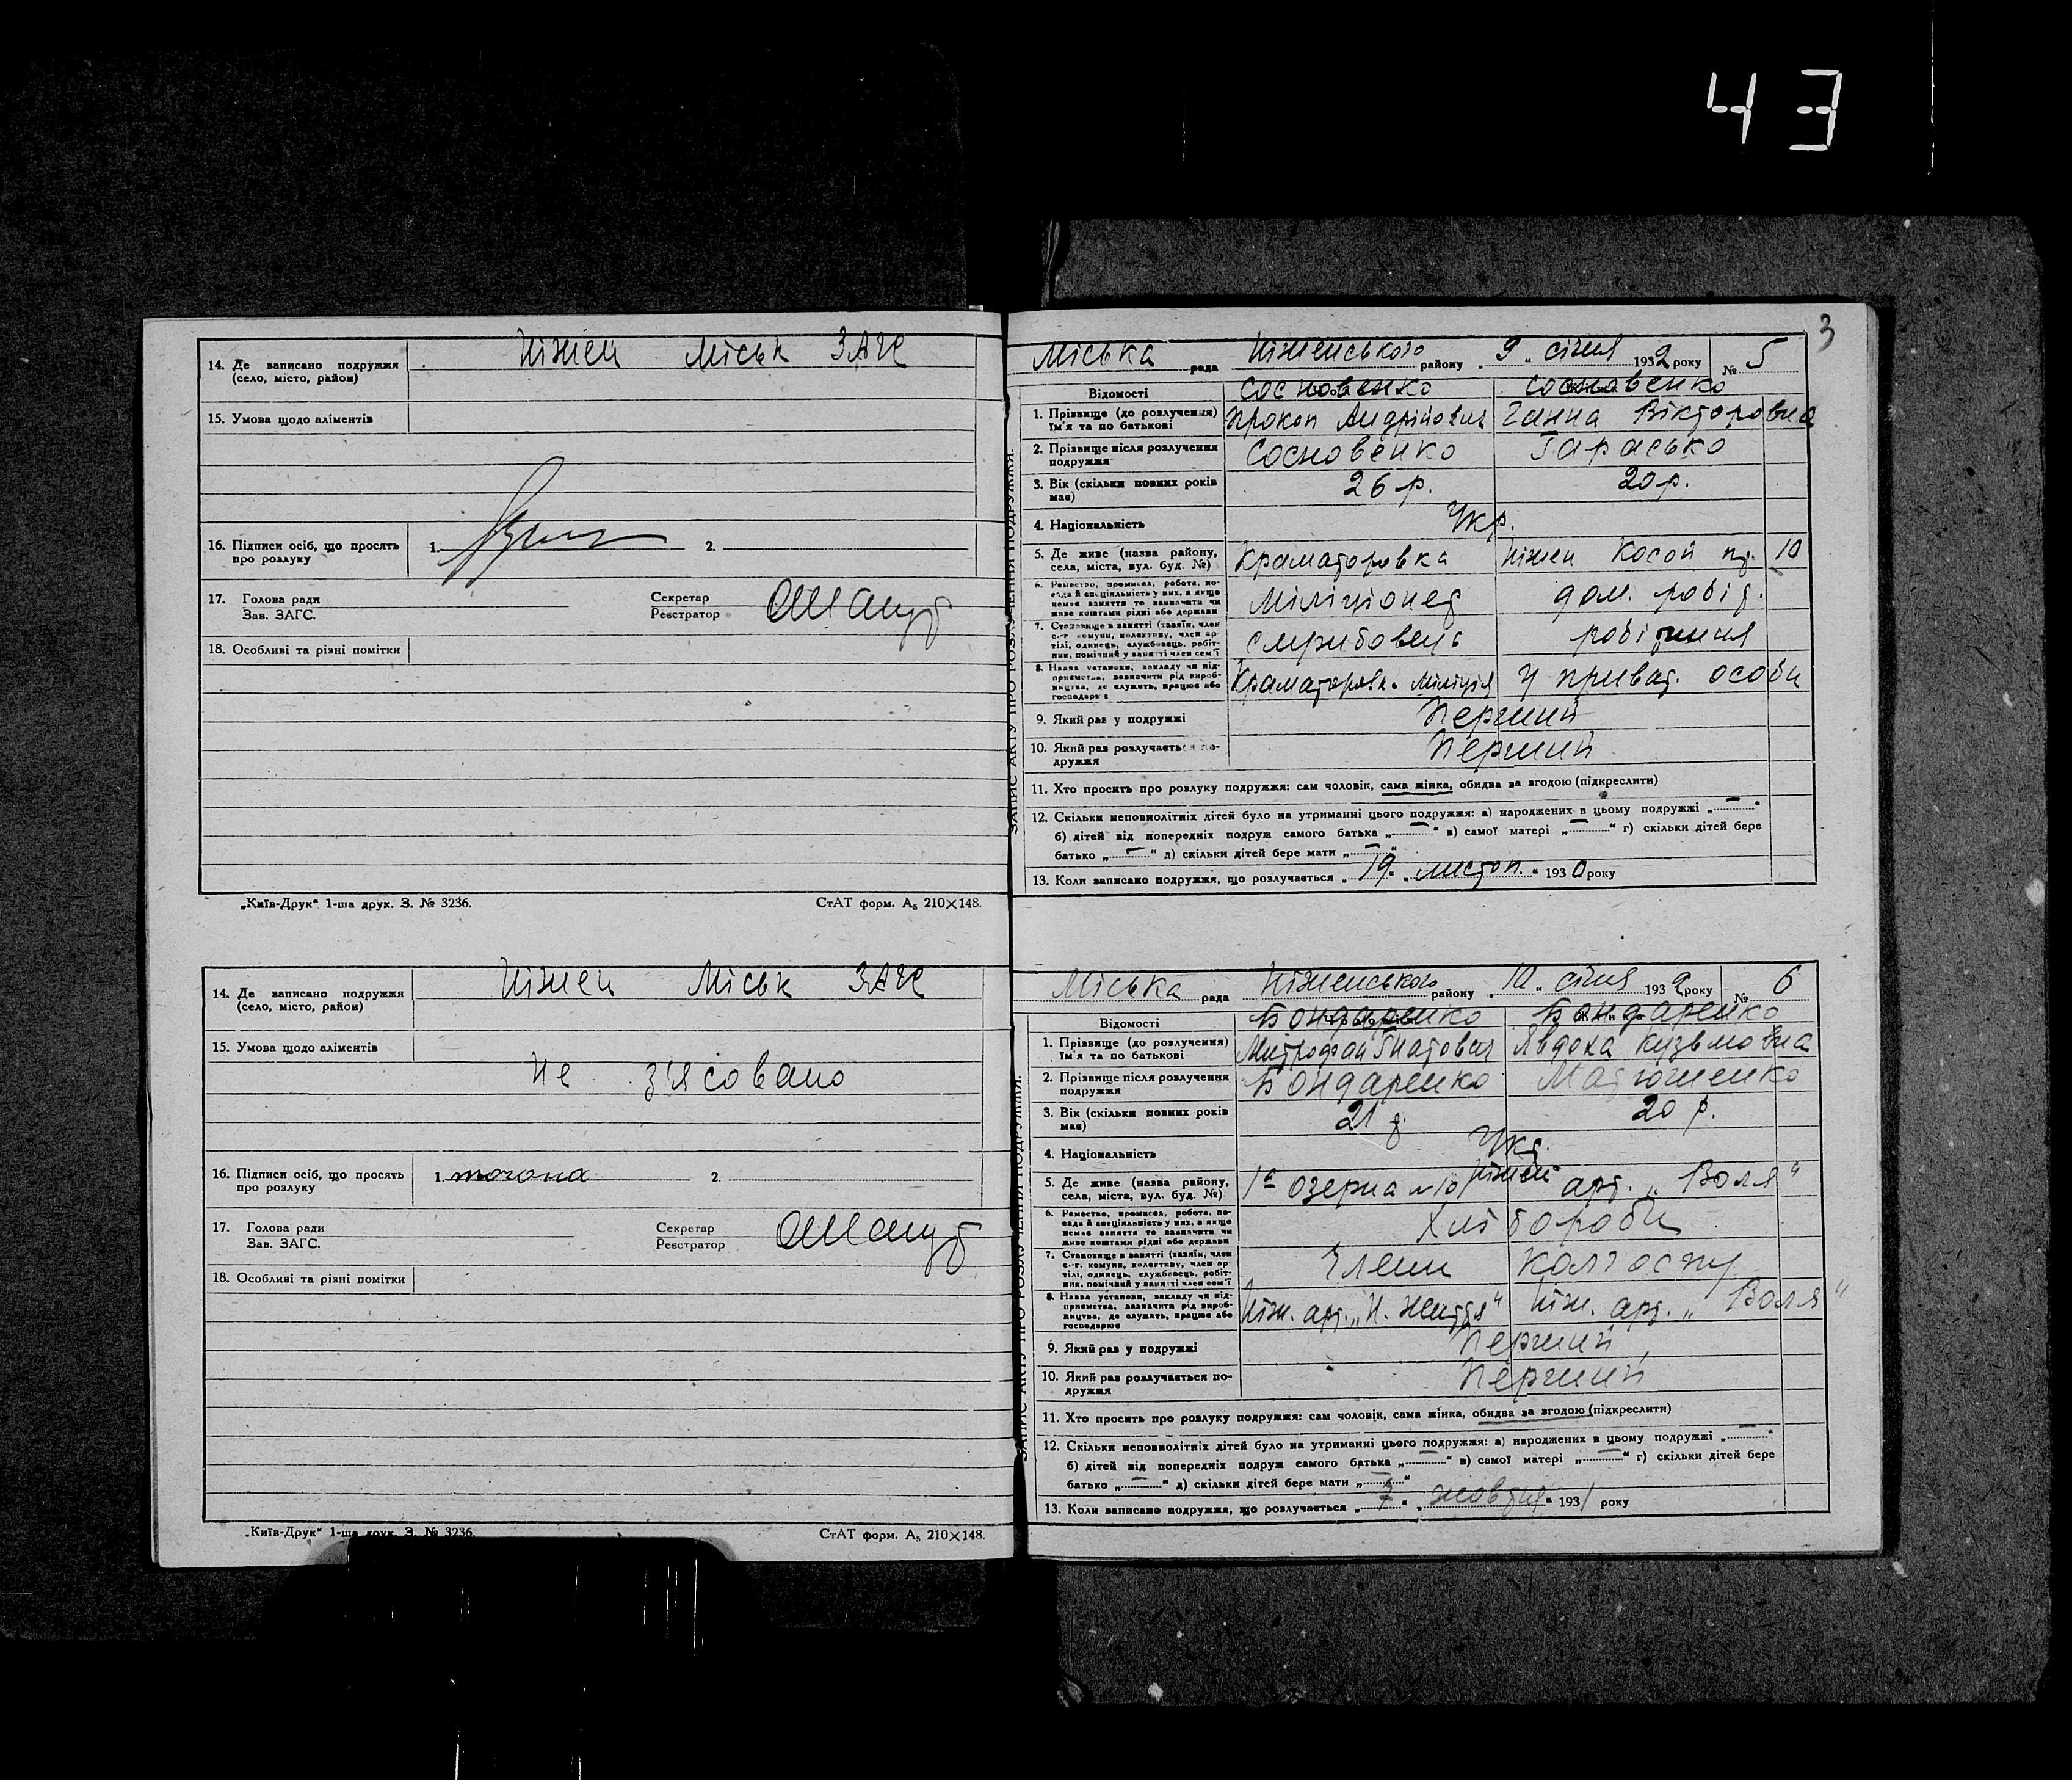 43
14. Де записано подружжя Ніжен Міськ ЗАГС
(село, місто, район)
15. Умова щодо аліментів
16. Підписи осіб, що просять 1. 2.
про розлуку
17. Голова ради Секретар
Зав. ЗАГС. Реєстратор
18. Особливі та різні помітки
„Київ-Друк“ 1-ша друк. З. № 3236. СтАТ форм. А₅ 210×148.
14. Де записано подружжя Ніжен Міськ ЗАГС
(село, місто, район)
15. Умова щодо аліментів
Не з'ясовано
16. Підписи осіб, що просять 1. 2.
про розлуку
17. Голова ради Секретар
Зав. ЗАГС. Реєстратор
18. Особливі та різні помітки
„Київ-Друк“ 1-ша друк. З. № 3236. СтАТ форм. А₅ 210×148.
3
ЗАПИС АКТУ ПРО РОЗЛУЧЕННЯ ПОДРУЖЖЯ.
Міська рада Ніженського району „9„ січня 1932 року № 5
Відомості Сосновенко Сосновенко
1. Прізвище (до розлучення) Прокоп Андрійович Ганна Вікторовна
Ім'я та по батькові
2. Прізвище після розлучення Сосновенко Тарасько
подружжя
3. Вік (скільки повних років 26 р. 20 р.
має)
4. Національність Укр.
5. Де живе (назва району, Краматоровка Ніжен Косой пр. 10
села, міста, вул. буд. №)
6. Ремество, промисел, робота, по-
сада й спеціяльність у них, а якщо Міліціонер дом. робіт.
немає заняття то зазначити чи
живе коштами рідні або держави
7. Становище в занятті (хазяїн, член
с.-г. комуни, колективу, член ар- службовець робітниця
тілі, одинець, службовець, робіт-
ник, помічний у занятті член сем'ї
8. Назва установи, закладу чи під-
приємства, зазначити рід вироб- Краматоровк. міліція У приват. особи
ництва, де служить, працює або
господарює
9. Який раз у подружжі Перший
10. Який раз розлучається по- Перший
дружжя
11. Хто просить про розлуку подружжя: сам чоловік, сама жінка, обидва за згодою (підкреслити)
12. Скільки неповнолітніх дітей було на утриманні цього подружжя: а) народжених в цьому подружжі „—“
б) дітей від попередніх подруж самого батька „—“ в) самої матері „—“ г) скільки дітей бере
батько „—“ д) скільки дітей бере мати „—“
13. Коли записано подружжя, що розлучається „19“ „листоп.“ 1930 року
ЗАПИС АКТУ ПРО РОЗЛУЧЕННЯ ПОДРУЖЖЯ.
Міська рада Ніженського району „10„ січня 1932 року № 6
Відомості Бондаренко Бондаренко
1. Прізвище (до розлучення) Митрофан Гнатович Явдоха Кузьмовна
Ім'я та по батькові
2. Прізвище після розлучення Бондаренко Матюшенко
подружжя
3. Вік (скільки повних років 21 р. 20 р.
має)
4. Національність Укр.
5. Де живе (назва району, 1а Озерна №10 Ніжен арт. „Воля“
села, міста, вул. буд. №)
6. Ремество, промисел, робота, по-
сада й спеціяльність у них, а якщо Хлібороби
немає заняття то зазначити чи
живе коштами рідні або держави
7. Становище в занятті (хазяїн, член
с.-г. комуни, колективу, член ар- Члени колгоспу
тілі, одинець, службовець, робіт-
ник, помічний у занятті член сем'ї
8. Назва установи, закладу чи під-
приємства, зазначити рід вироб- Ніж. арт. „Н. Життя“ Ніж. арт. „Воля“
ництва, де служить, працює або
господарює
9. Який раз у подружжі Перший
10. Який раз розлучається по- Перший
дружжя
11. Хто просить про розлуку подружжя: сам чоловік, сама жінка, обидва за згодою (підкреслити)
12. Скільки неповнолітніх дітей було на утриманні цього подружжя: а) народжених в цьому подружжі „—“
б) дітей від попередніх подруж самого батька „—“ в) самої матері „—“ г) скільки дітей бере
батько „—“ д) скільки дітей бере мати „—“
13. Коли записано подружжя, що розлучається „7“ „жовтня“ 1931 року